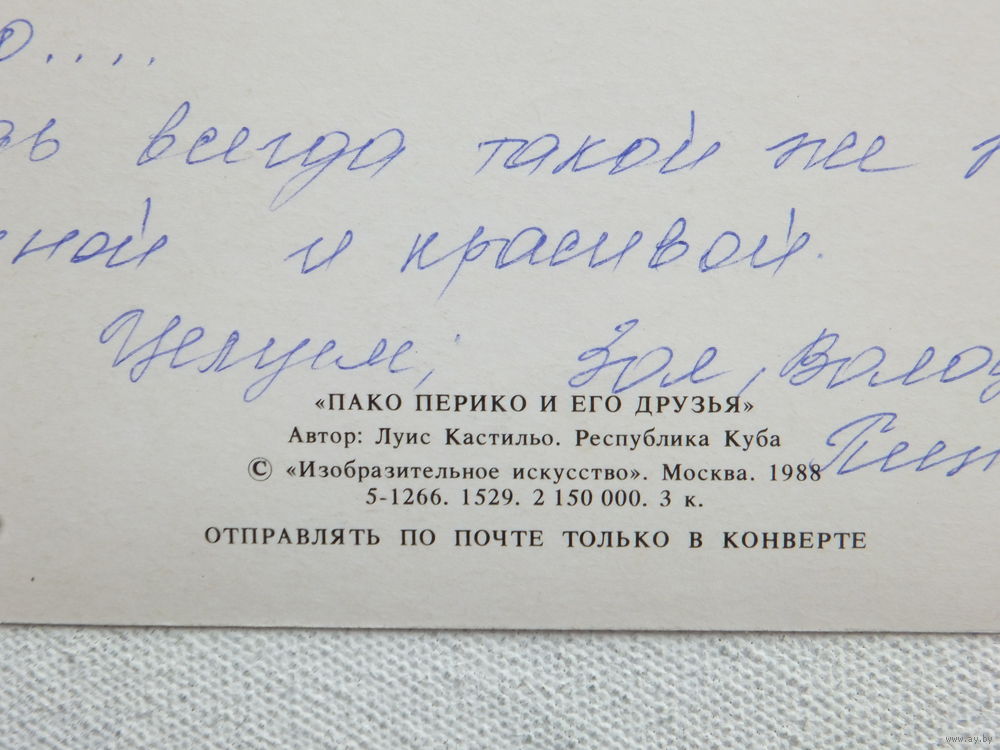 о....
зь всегда такой же
ной и красивой.
Целуем; Зоя, Воло
«ПАКО ПЕРИКО И ЕГО ДРУЗЬЯ»
Автор: Луис Кастильо. Республика Куба
© «Изобразительное искусство». Москва. 1988
5-1266. 1529. 2 150 000. 3 к.
ОТПРАВЛЯТЬ ПО ПОЧТЕ ТОЛЬКО В КОНВЕРТЕ
www.ay.by